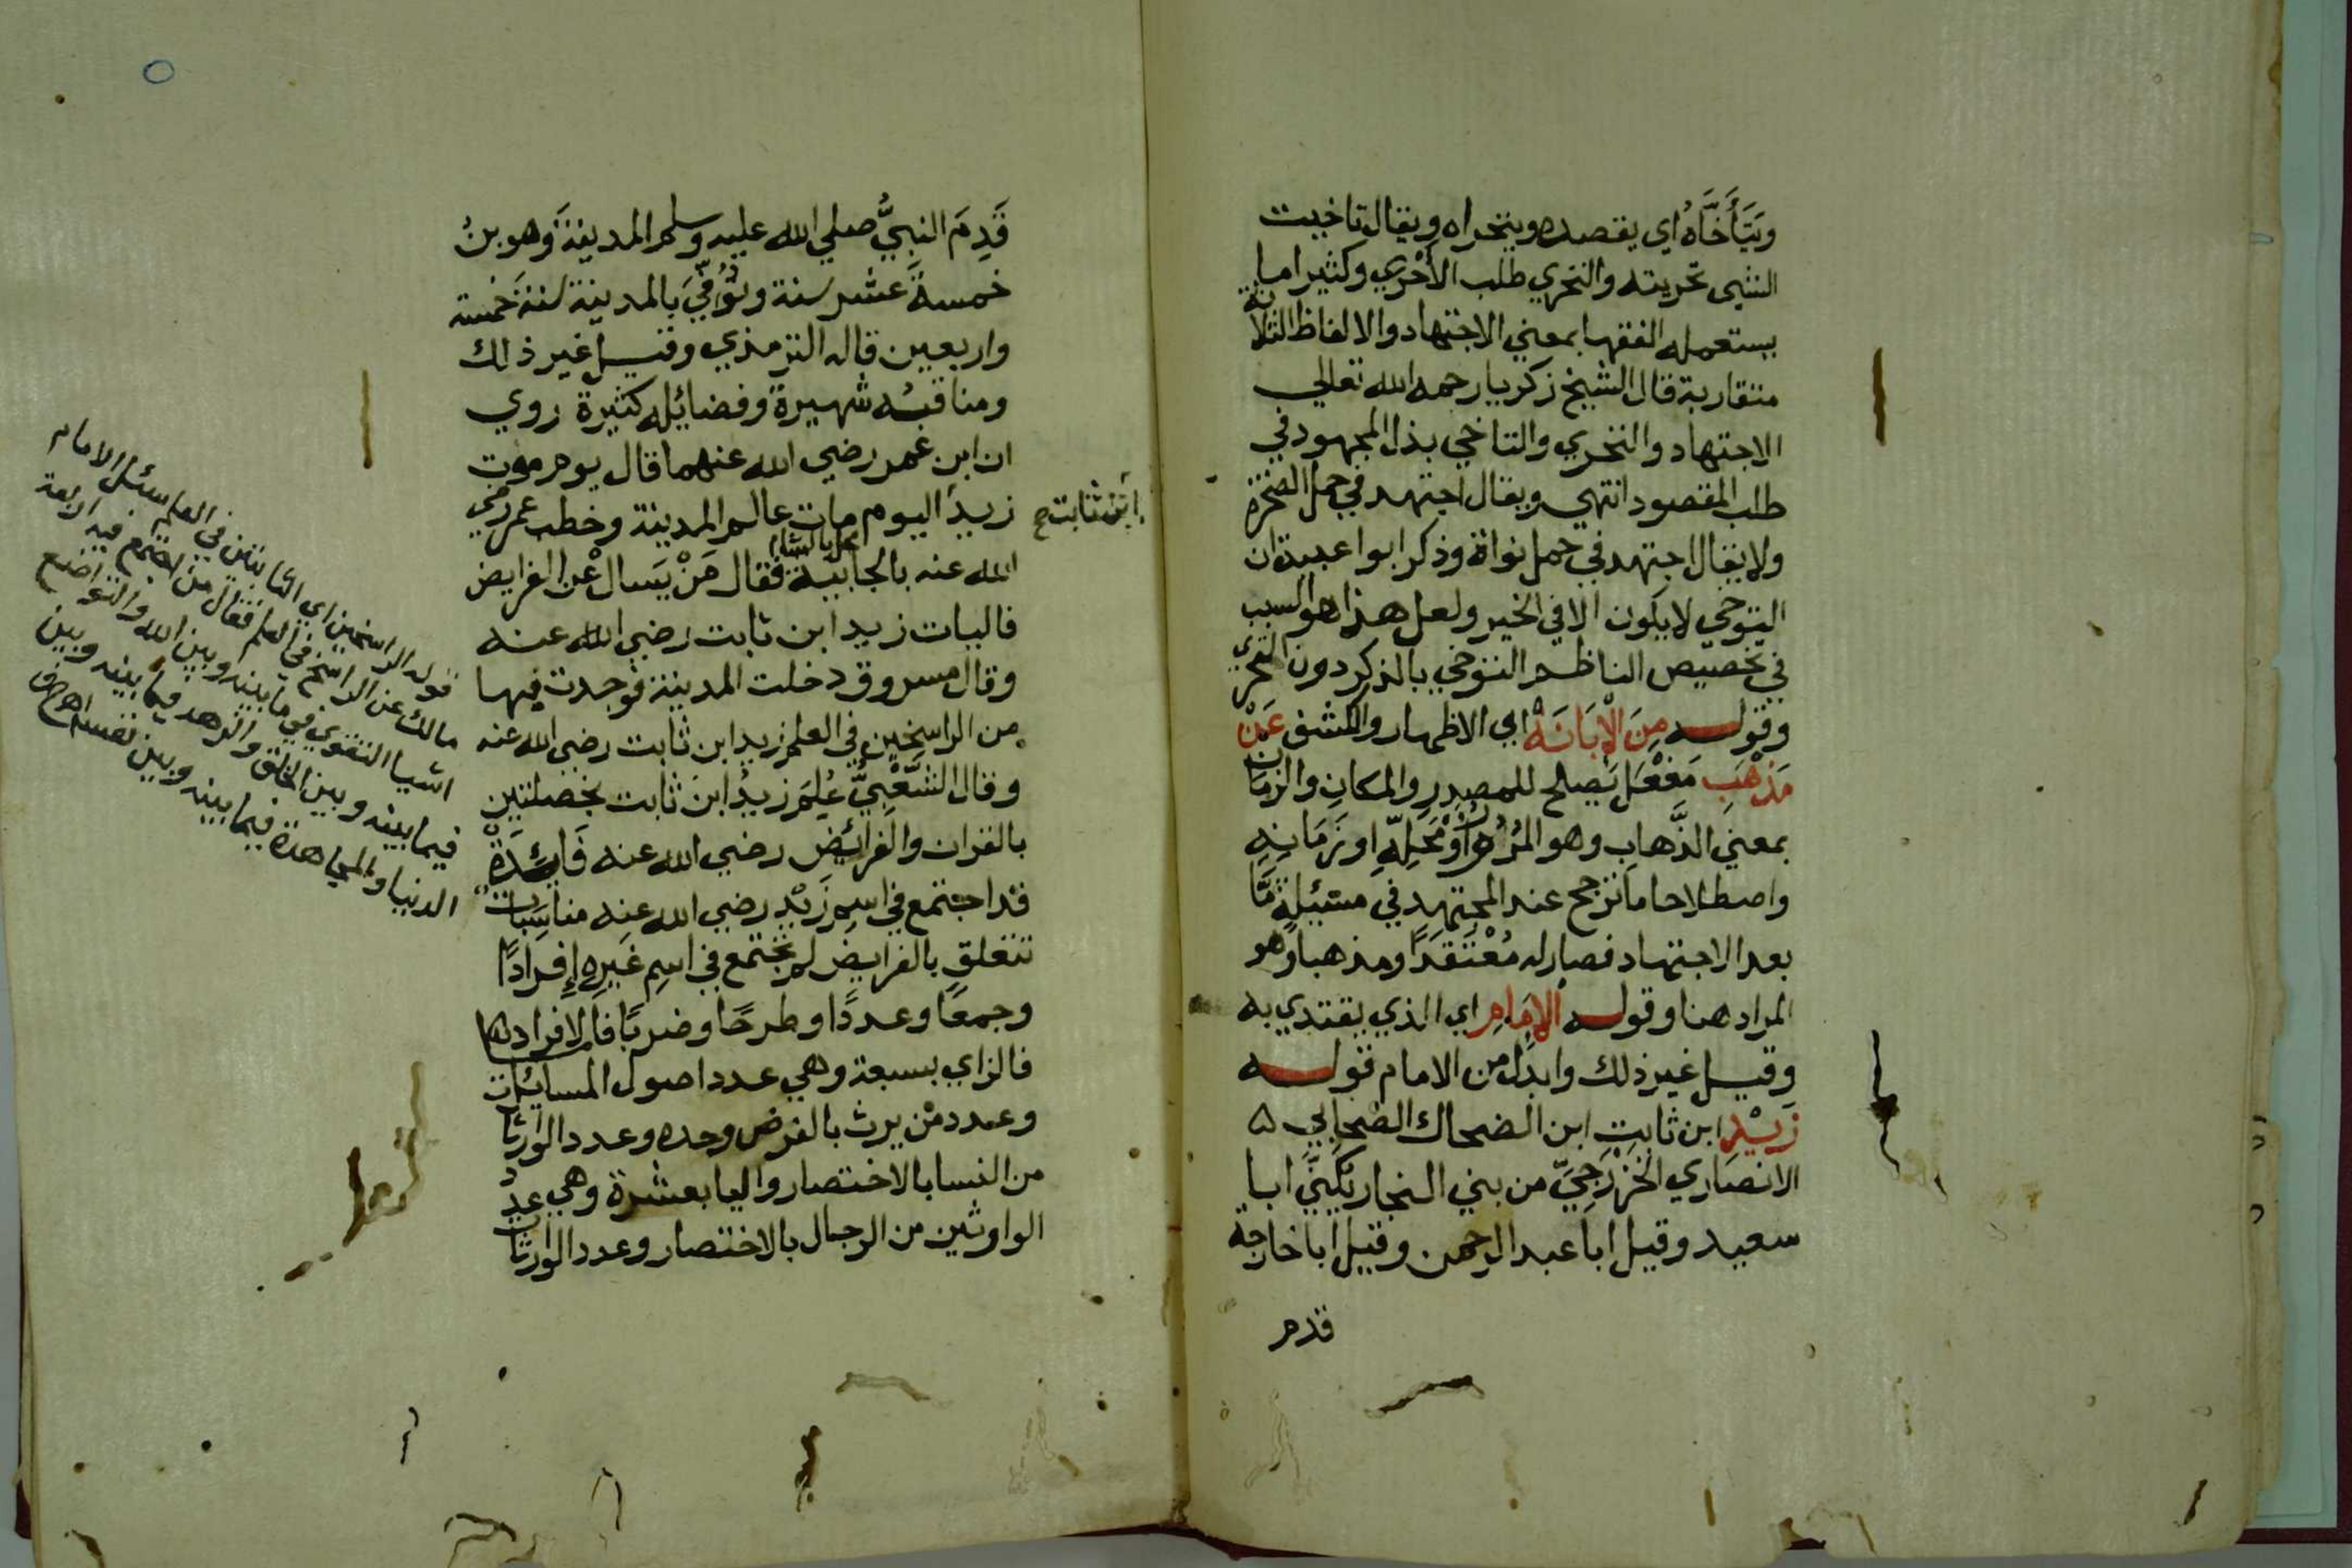 وَيَتَأَخَّاهُ اي يقصده ويتحراه ويقال تاخيت
الشي تحريته والتحري طلب الأحْري وكثيرا ما
يستعمله الفقها بمعني الاجتهاد والالفاظ الثلاثة
متقاربة قال الشيخ زكريا رحمه الله تعالي
الاجتهاد والتحري والتاخي بذل المجهود في
طلب المقصود انتهي ويقال اجتهد في حمل الصخرة
ولا يقال اجتهد في حمل نواة وذكر ابوا عبيدة ان
التوخي لا يكون الا في الخير ولعل هذا هو السبب
في تخصيص الناظم التوخي بالذكر دون التحري
وقوله مِنَ الْإِبَانَةْ اي الاظهار والكشف عَنْ
مَذْهَبِ مَفْعَل يَصلح للمصدر والمكان والزمان
بمعني الذَّهاب وهو المُرُورُ اوْ مَحَلِهِ او زَمَانِهِ
واصطلاحا ما ترجح عند المجتهد في مسئيلةٍ مَّا
بعد الاجتهاد فصار له مُعْتَقَدًا ومذهبا وهو
المراد هنا وقوله الإِمَامِ اي الذي يقتدي به
وقيل غير ذلك وابدل من الامام قوله
زَيْدِ ابن ثابتِ ابن الضحاك الصّحابي ۵
الانصاري الخَزْرَجِيّ من بني النجار يُكَنَّي ابا
سعيد وقيل ابا عبد الرحمن وقيل ابا خارجة
قدم
قَدِمَ النبيُّ صلي الله عليه وسلم المدينةَ وهو بنُ
خمسةَ عشر سنة وتُوُفِّيَ بالمدينة سنةَ خمسة
واربعين قاله الترمذي وقيل غير ذلك
ومناقبُه شهيرةٌ وفضائله كثيرة روي
ان ابن عمر رضي الله عنهما قال يوم موت
زيد اليوم مات عالم المدينة وخطب عمر رضي
ابن ثابت صح
الله عنه بالجابيّة فقال مَنْ يَسال عْن الفرايض
محل بالشام
فاليات زيد ابن ثابت رضي الله عنه
وقال مسروق دخلت المدينة فوجدت فيها
من الراسخين في العلم زيد ابن ثابت رضي الله عنه
وقال الشَّعْبِيُّ عُلِمَ زيدُ ابن ثابت بخصلتين
بالقران والفرائض رضي الله عنه فَائِدَةْ
قد اجتمع في اسم زَيْدٍ رضي الله عنه مناسَبات
تتعلق بالفرايض لم تجتمع في اسمِ غَيره إِفرادًا
وجمعًا وعددًا وطرحًا وضربًا فالافراد ها
فالزاي بسبعة وهي عدد اصول المسايل
وعدد مْن يرث بالفرض وحده وعدد الوارثات
من النسا بالاختصار واليا بعشرة وهي عدد
الواوثين من الرجال بالاختصار وعدد الوارثات
قوله الراسخين اي الثابتين في العلم سئل الامام
مالك عن الراسخ في العلم فقال من اجتمع فيه اربعة
اشيا التقوي في ما بينه وبين الله والتواضع
فيما بينه وبين الخلق والزهد فيما بينه وبين
الدنيا والمجاهدة فيما بينه وبين نفسه